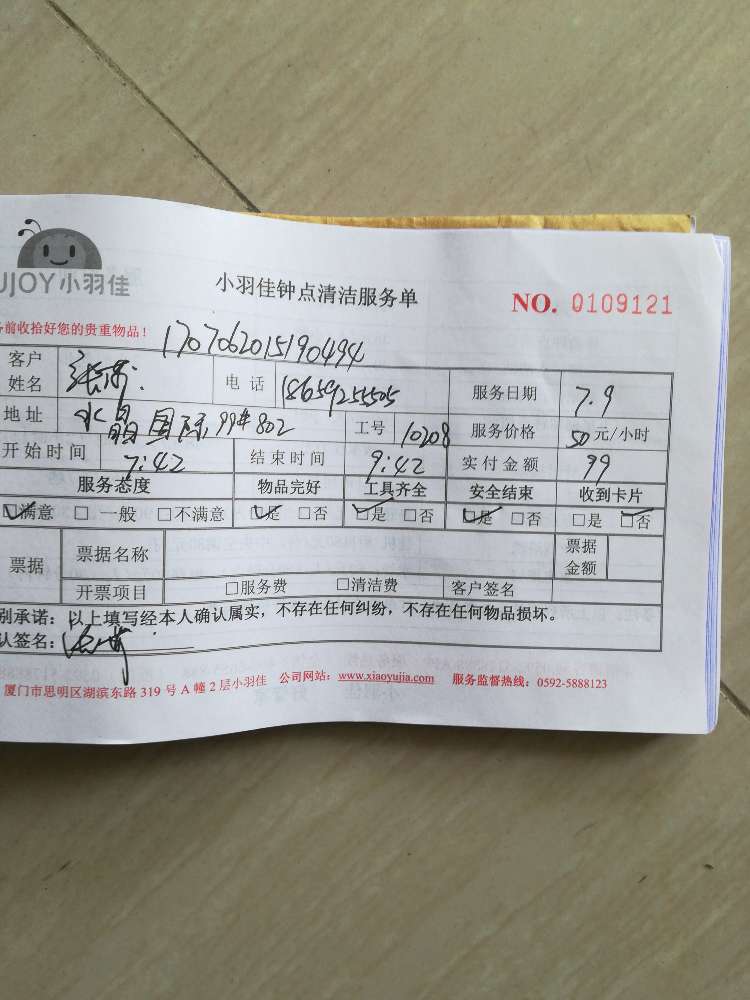 UJOY小羽佳
小羽佳钟点清洁服务单
NO. 0109121
务前收拾好您的贵重物品！
1707062015190494
客户姓名 电话 18659255505 服务日期 7.9
地址 水晶国际99#802 工号 10208 服务价格 50元/小时
开始时间 7:42 结束时间 9:42 实付金额 99
服务态度 物品完好 工具齐全 安全结束 收到卡片
☑满意 □一般 □不满意 ☑是 □否 ☑是 □否 ☑是 □否 □是 ☑否
票据 票据名称 票据金额
开票项目 □服务费 □清洁费 客户签名
别承诺：以上填写经本人确认属实，不存在任何纠纷，不存在任何物品损坏。
认签名：
厦门市思明区湖滨东路 319 号 A 幢 2 层小羽佳 公司网站：www.xiaoyujia.com 服务监督热线：0592-5888123